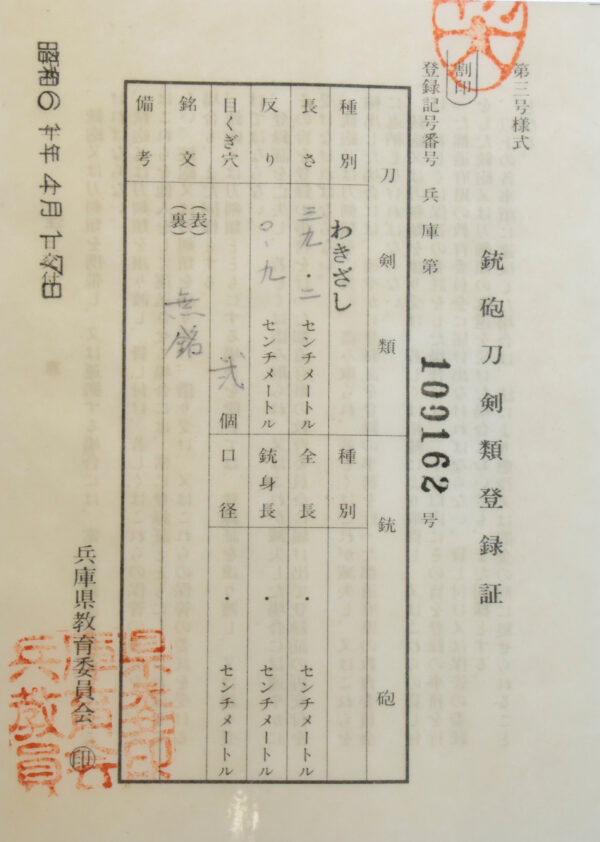 第三号様式
銃砲刀剣類登録証
割印
登録記号番号 兵庫第 109162 号
刀剣類
銃砲
種別 わきざし
種別
長さ 三九・二 センチメートル
全長 ・ センチメートル
反り 〇・九 センチメートル
銃身長 ・ センチメートル
目くぎ穴 弐 個
口径 ・ センチメートル
銘文 (表) 無銘
(裏)
備考
兵庫県教育委員会 印
昭和 年 4月 日